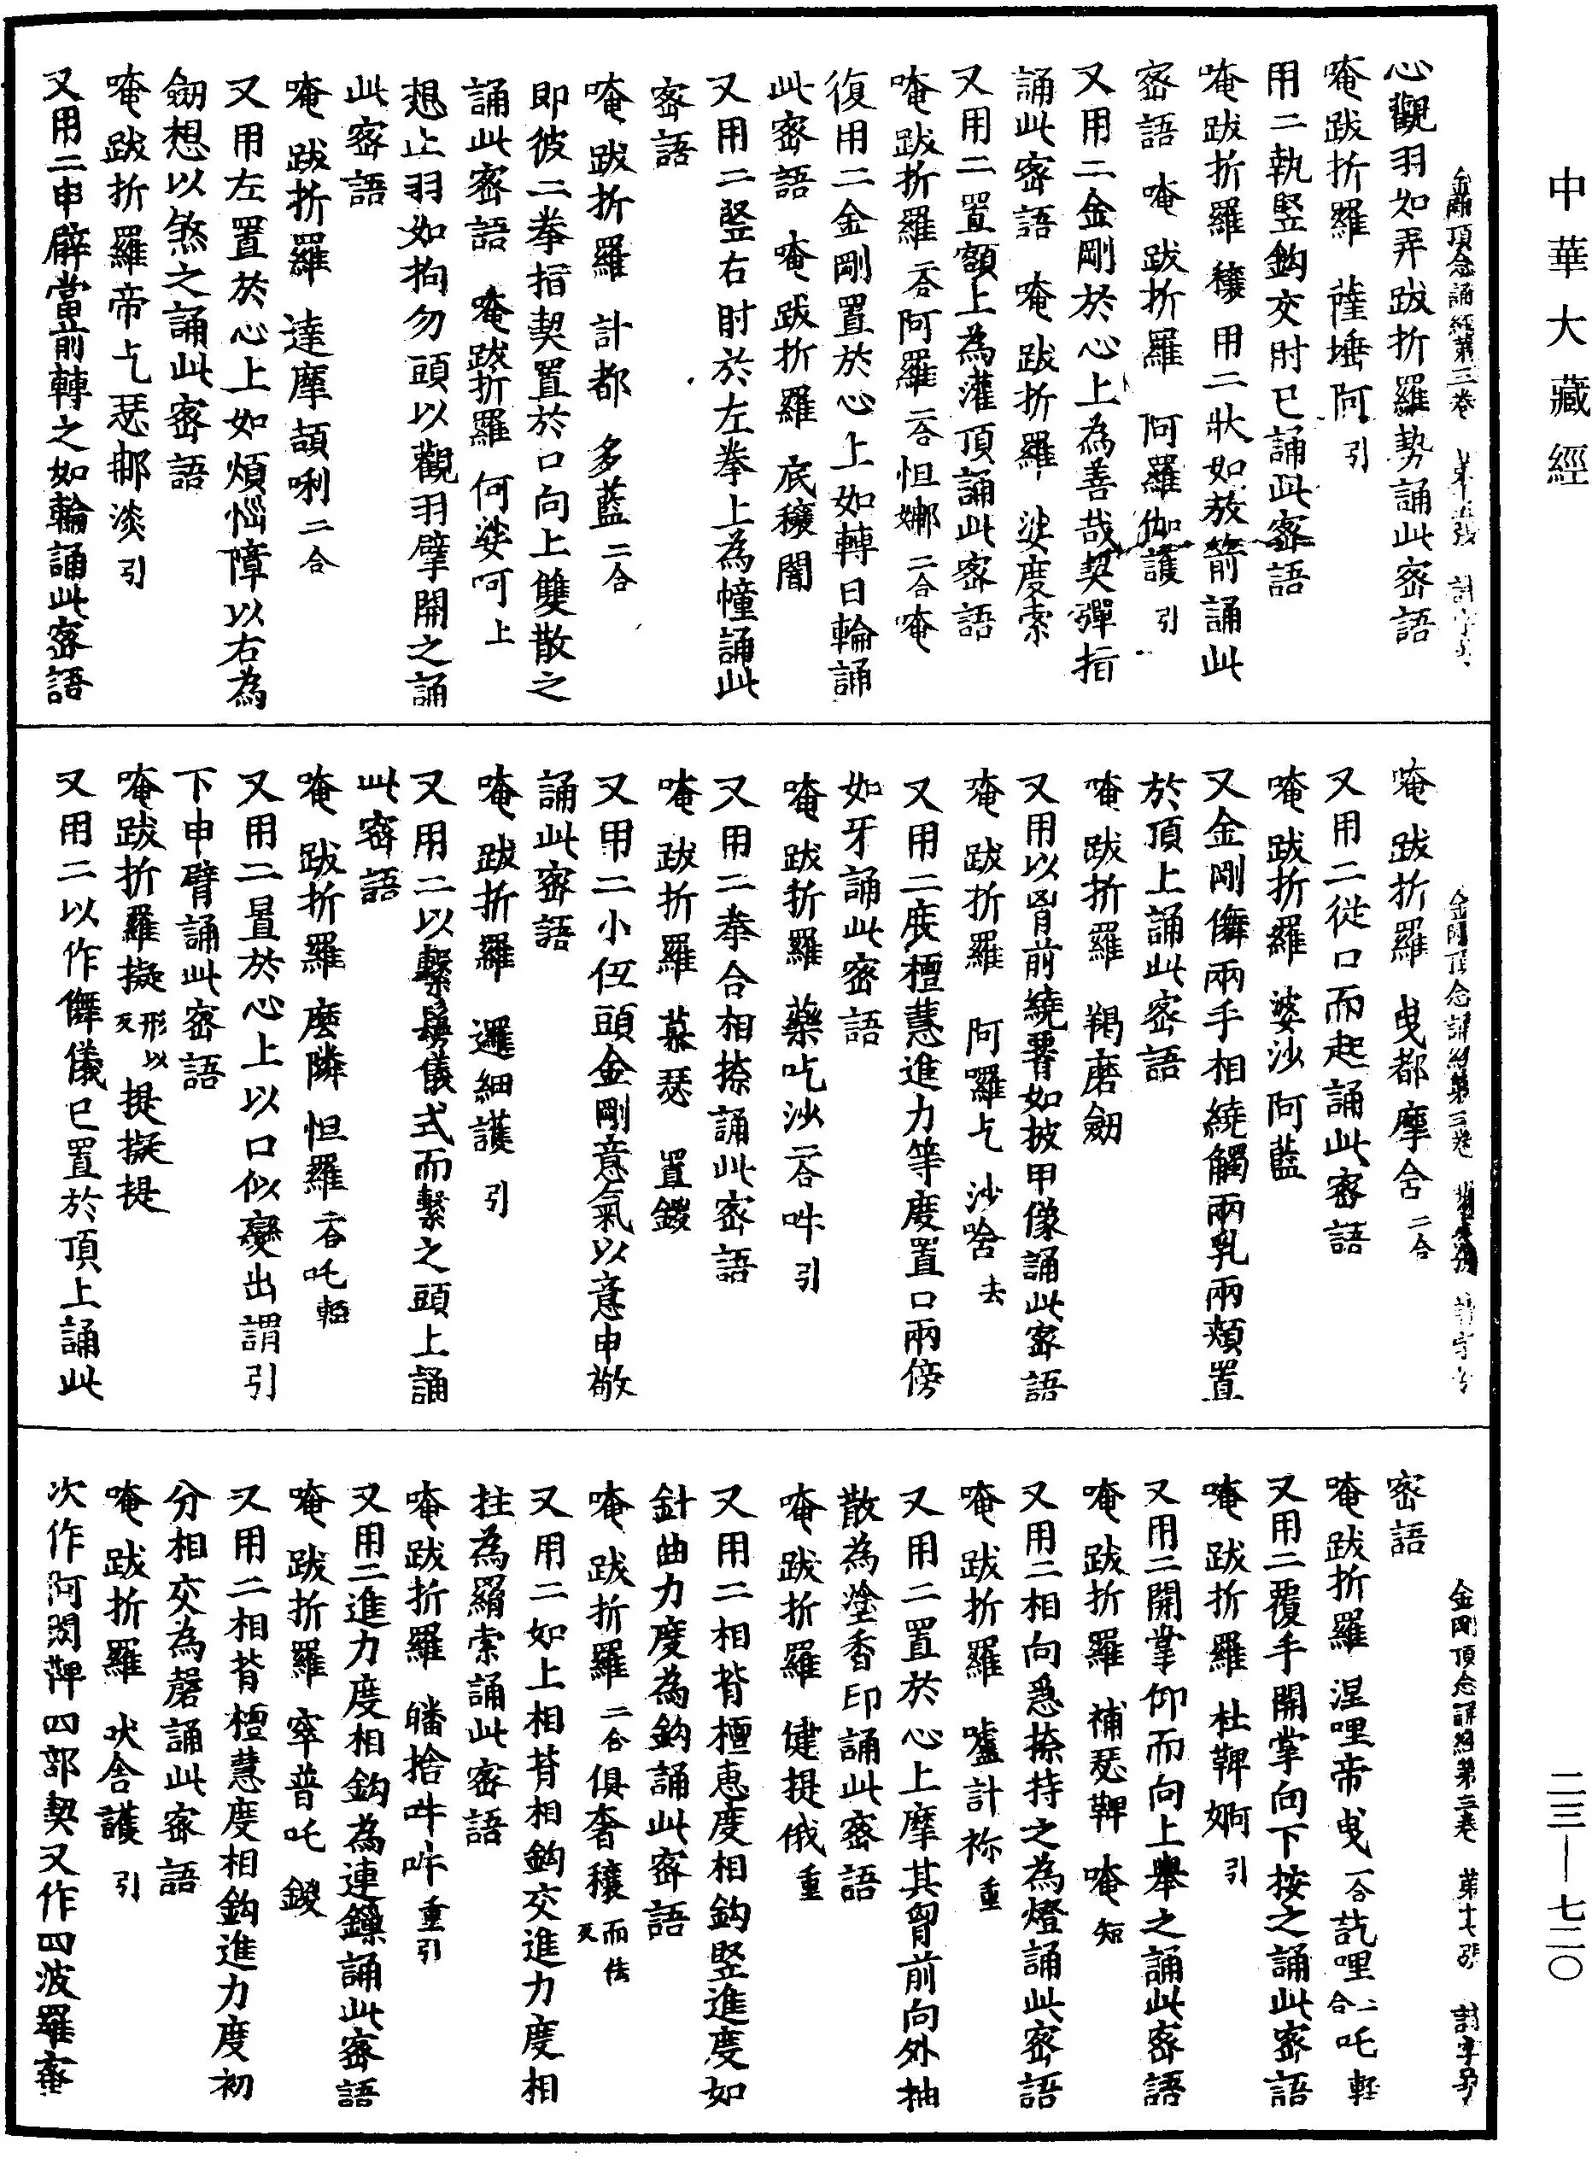 中華大藏經
金剛頂念誦經第三卷
心觀羽如弄跋折羅勢誦此密語
唵跋折羅 薩埵阿引
用二執竪鈎交肘已誦此密語
唵跋折羅 穰 用二狀如放箭誦此
密語 唵 跋折羅 阿羅伽護引
又用二金剛於心上為善哉契彈指
誦此密語 唵 跋折羅 娑度索
又用二置額上為灌頂誦此密語
唵跋折羅二合阿羅二合怛娜二合唵
復用二金剛置於心上如轉日輪誦
此密語 唵跋折羅 底穰闇
又用二竪右肘於左拳上為幢誦此
密語
唵 跋折羅 計都 多藍二合
即彼二拳指契置於口向上雙散之
誦此密語 唵跋折羅 何娑呵上
想止羽如拘勿頭以觀羽擘開之誦
此密語
唵 跋折羅 達摩頡唎二合
又用左置於心上如煩惱障以右為
劒想以煞之誦此密語
唵跋折羅帝乞瑟那淡引
又用二申臂當前轉之如輪誦此密語
金剛頂念誦經第三卷
唵 跋折羅 曳都摩舍二合
又用二從口而起誦此密語
唵 跋折羅 婆沙阿藍
又金剛儛兩手相繞觸兩乳兩頰置
於頂上誦此密語
唵 跋折羅 羯磨劒
又用以胷前繞臂如披甲像誦此密語
唵 跋折羅 阿囉乞 沙唅去
又用二度檀慧進力等度置口兩傍
如牙誦此密語
唵 跋折羅 藥吃沙二合吽引
又用二拳合相捺誦此密語
唵 跋折羅 慕瑟 置鑁
又用二小伍頭金剛意氣以意申敬
誦此密語
唵 跋折羅 邏細護引
又用二以繫鬘儀式而繫之頭上誦
此密語
唵 跋折羅麼隣 怛羅二合吒輕
又用二置於心上以口似變出謂引
下申臂誦此密語
唵跋折羅擬形以反提擬提
又用二以作儛儀已置於頂上誦此
金剛頂念誦經第三卷 第十七張
密語
唵跋折羅 涅哩帝曳二合訖哩二合吒輕
又用二覆手開掌向下按之誦此密語
唵 跋折羅 杜鞞婀引
又用二開掌仰而向上舉之誦此密語
唵 跋折羅 補瑟鞞 唵短
又用二相向急捺持之為燈誦此密語
唵 跋折羅 嚧計祢重
又用二置於心上摩其胷前向外抽
散為塗香印誦此密語
唵 跋折羅 健提俄重
又用二相背檀惠度相鈎竪進度如
針曲力度為鈎誦此密語
唵 跋折羅二合俱奢穰而佉反
又用二如上相背相鈎交進力度相
拄為羂索誦此密語
唵跋折羅 皤捨吽吽重引
又用二進力度相鈎為連鏁誦此密語
唵 跋折羅 窣普吒 鑁
又用二相背檀慧度相鈎進力度初
分相交為磬誦此密語
唵 跋折羅 吠舍護引
次作阿閦鞞四部契又作四波羅蜜
二三—七二〇